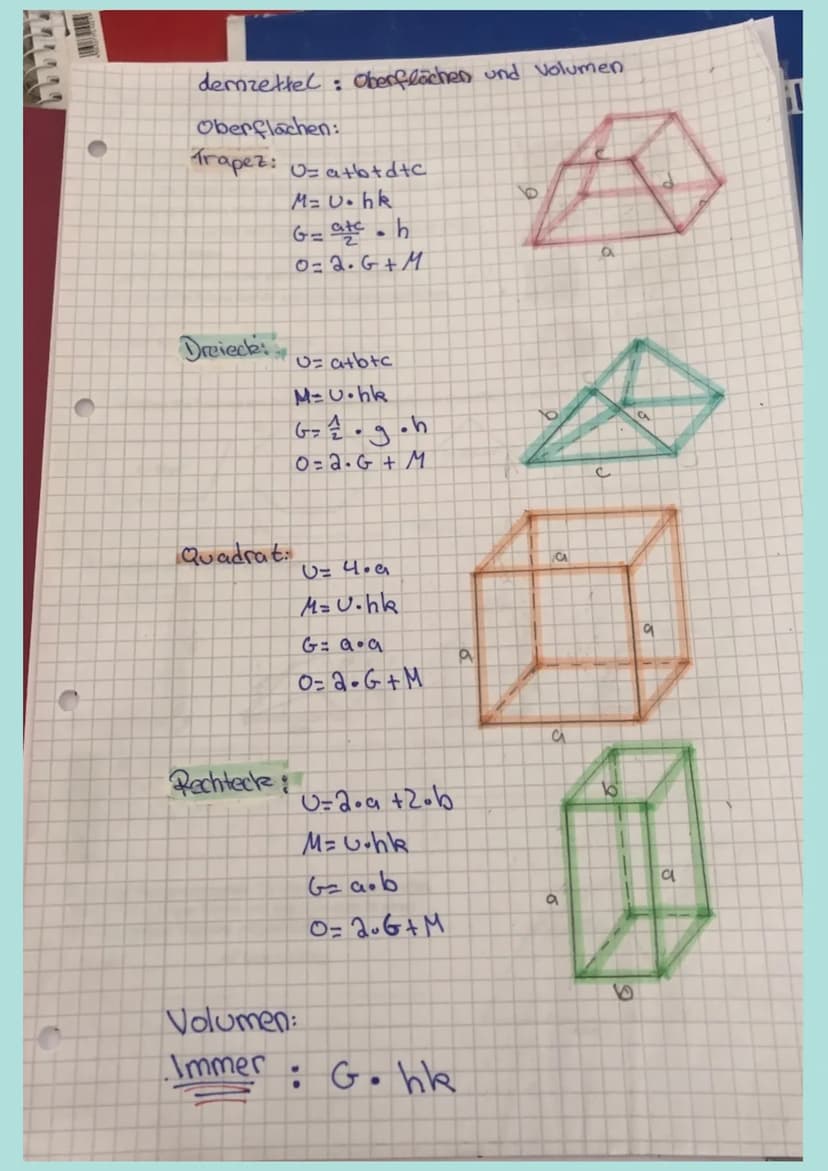 Lernzettel : Oberflächen und Volumen
Oberflächen:
Trapez:
U= a+b+d+c
M= U • hk
G= a+c/2 • h
O= 2 • G + M
c
b
d
a
Dreieck:
U= a+b+c
M= U•hk
G= 1/2 • g • h
O= 2 • G + M
b
a
c
Quadrat:
U= 4•a
M= U•hk
G= a•a
O= 2•G+M
a
a
a
a
Rechteck:
U=2•a +2•b
M= U•hk
G= a•b
O= 2•G+M
b
a
a
b
Volumen:
Immer : G • hk